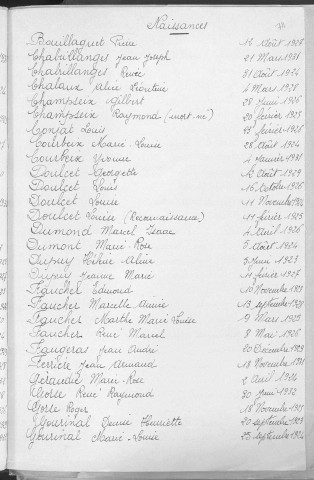 Naissances
Bouillaguet Pierre 12 Août 1928
Chabrillanges Jean Joseph 21 Mars 1931
Chabrillanges Renée 31 Août 1924
Chataux Alice Léontine 4 Mars 1928
Champseix Gilbert 28 Juin 1926
Champseix Raymond (mort-né) 20 février 1925
Confat Louis février 1928
Courbeix Marie Louise 28 Août 1924
Courbeix Yvonne 4 Janvier 1931
Doulcet Georgette Août 1929
Doulcet Louis 16 Octobre 1926
Doulcet Louise 11 Novembre 1924
Doulcet Louise (Reconnaissance) 19 février 1925
Dumond Marcel Isaac 4 Août 1926
Dumont Marie-Rose 5 Août 1924
Dupuy Aline 3 Juin 1923
Dupuy Jeanne Marie 11 février 1927
Faucher Edmond 16 Novembre 1929
Faucher Marcelle Annie 13 septembre
Faucher Marthe Marie Louise 7 Mars 1925
Faucher René Marcel 8 Mai 1926
Faugeras Jean André 20 Décembre 1929
Ferrière Jean Armand 18 Novembre 1931
Géraudie Marie-Rose 2 Avril 1926
Gorse René Raymond 30 Juin
Gorse Roger 18 Novembre 1925
Gourinal Denise Henriette 20 septembre 1923
Gourinal Marie-Louise 25 septembre 1924